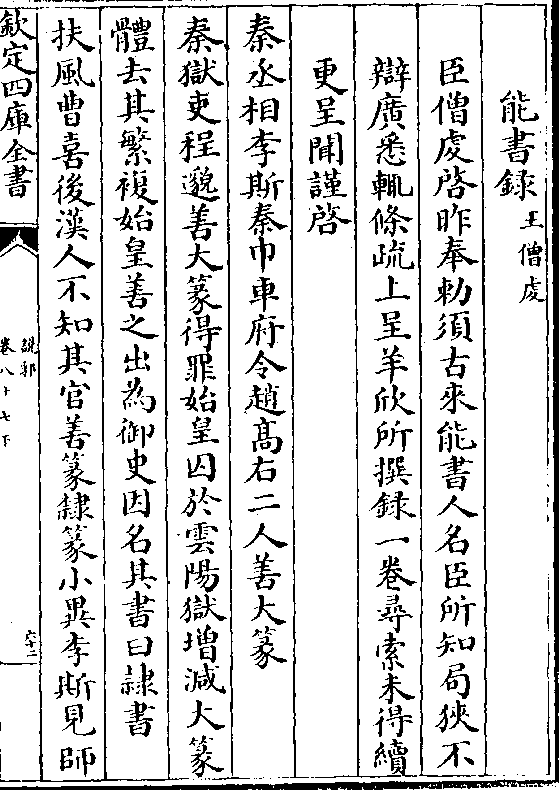 能書録 王僧䖍
臣僧䖍啓昨奉勅須古來能書人名臣所知局狹不
辯廣悉輒條疏上呈羊欣所撰録一卷尋索未得續
更呈聞謹啓
秦丞相李斯秦巾車府令趙髙右二人善大篆
秦獄吏程邈善大篆得罪始皇囚於雲陽獄增減大篆
體去其繁複始皇善之出為御史因名其書曰隷書
扶風曹喜後漢人不知其官善篆隷篆小異李斯見師
欽定四庫全書
說郛
卷八十七下
六十三